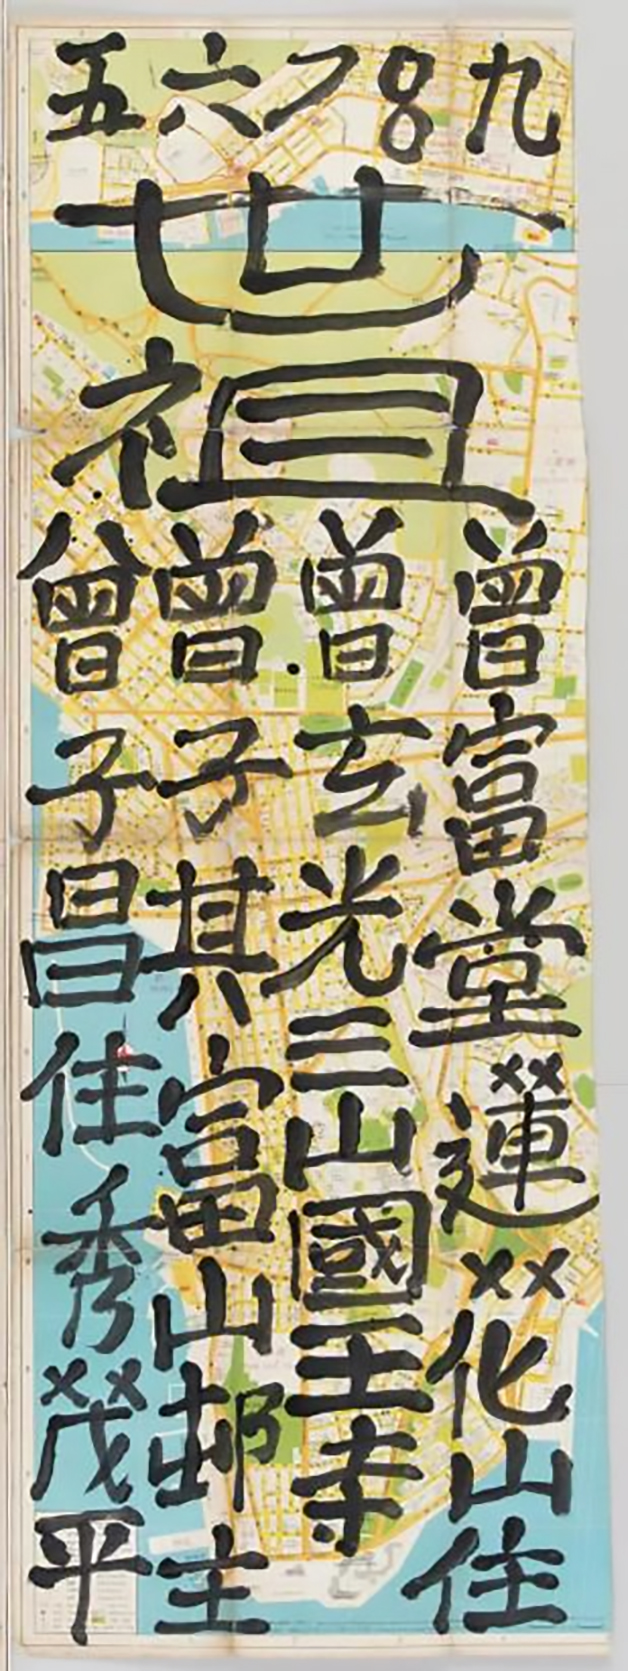 五六78九
世
祖
曾富堂蓮花山住
曾玄光三山國王寺
曾子其富山邨主
曾子昌住秀茂平